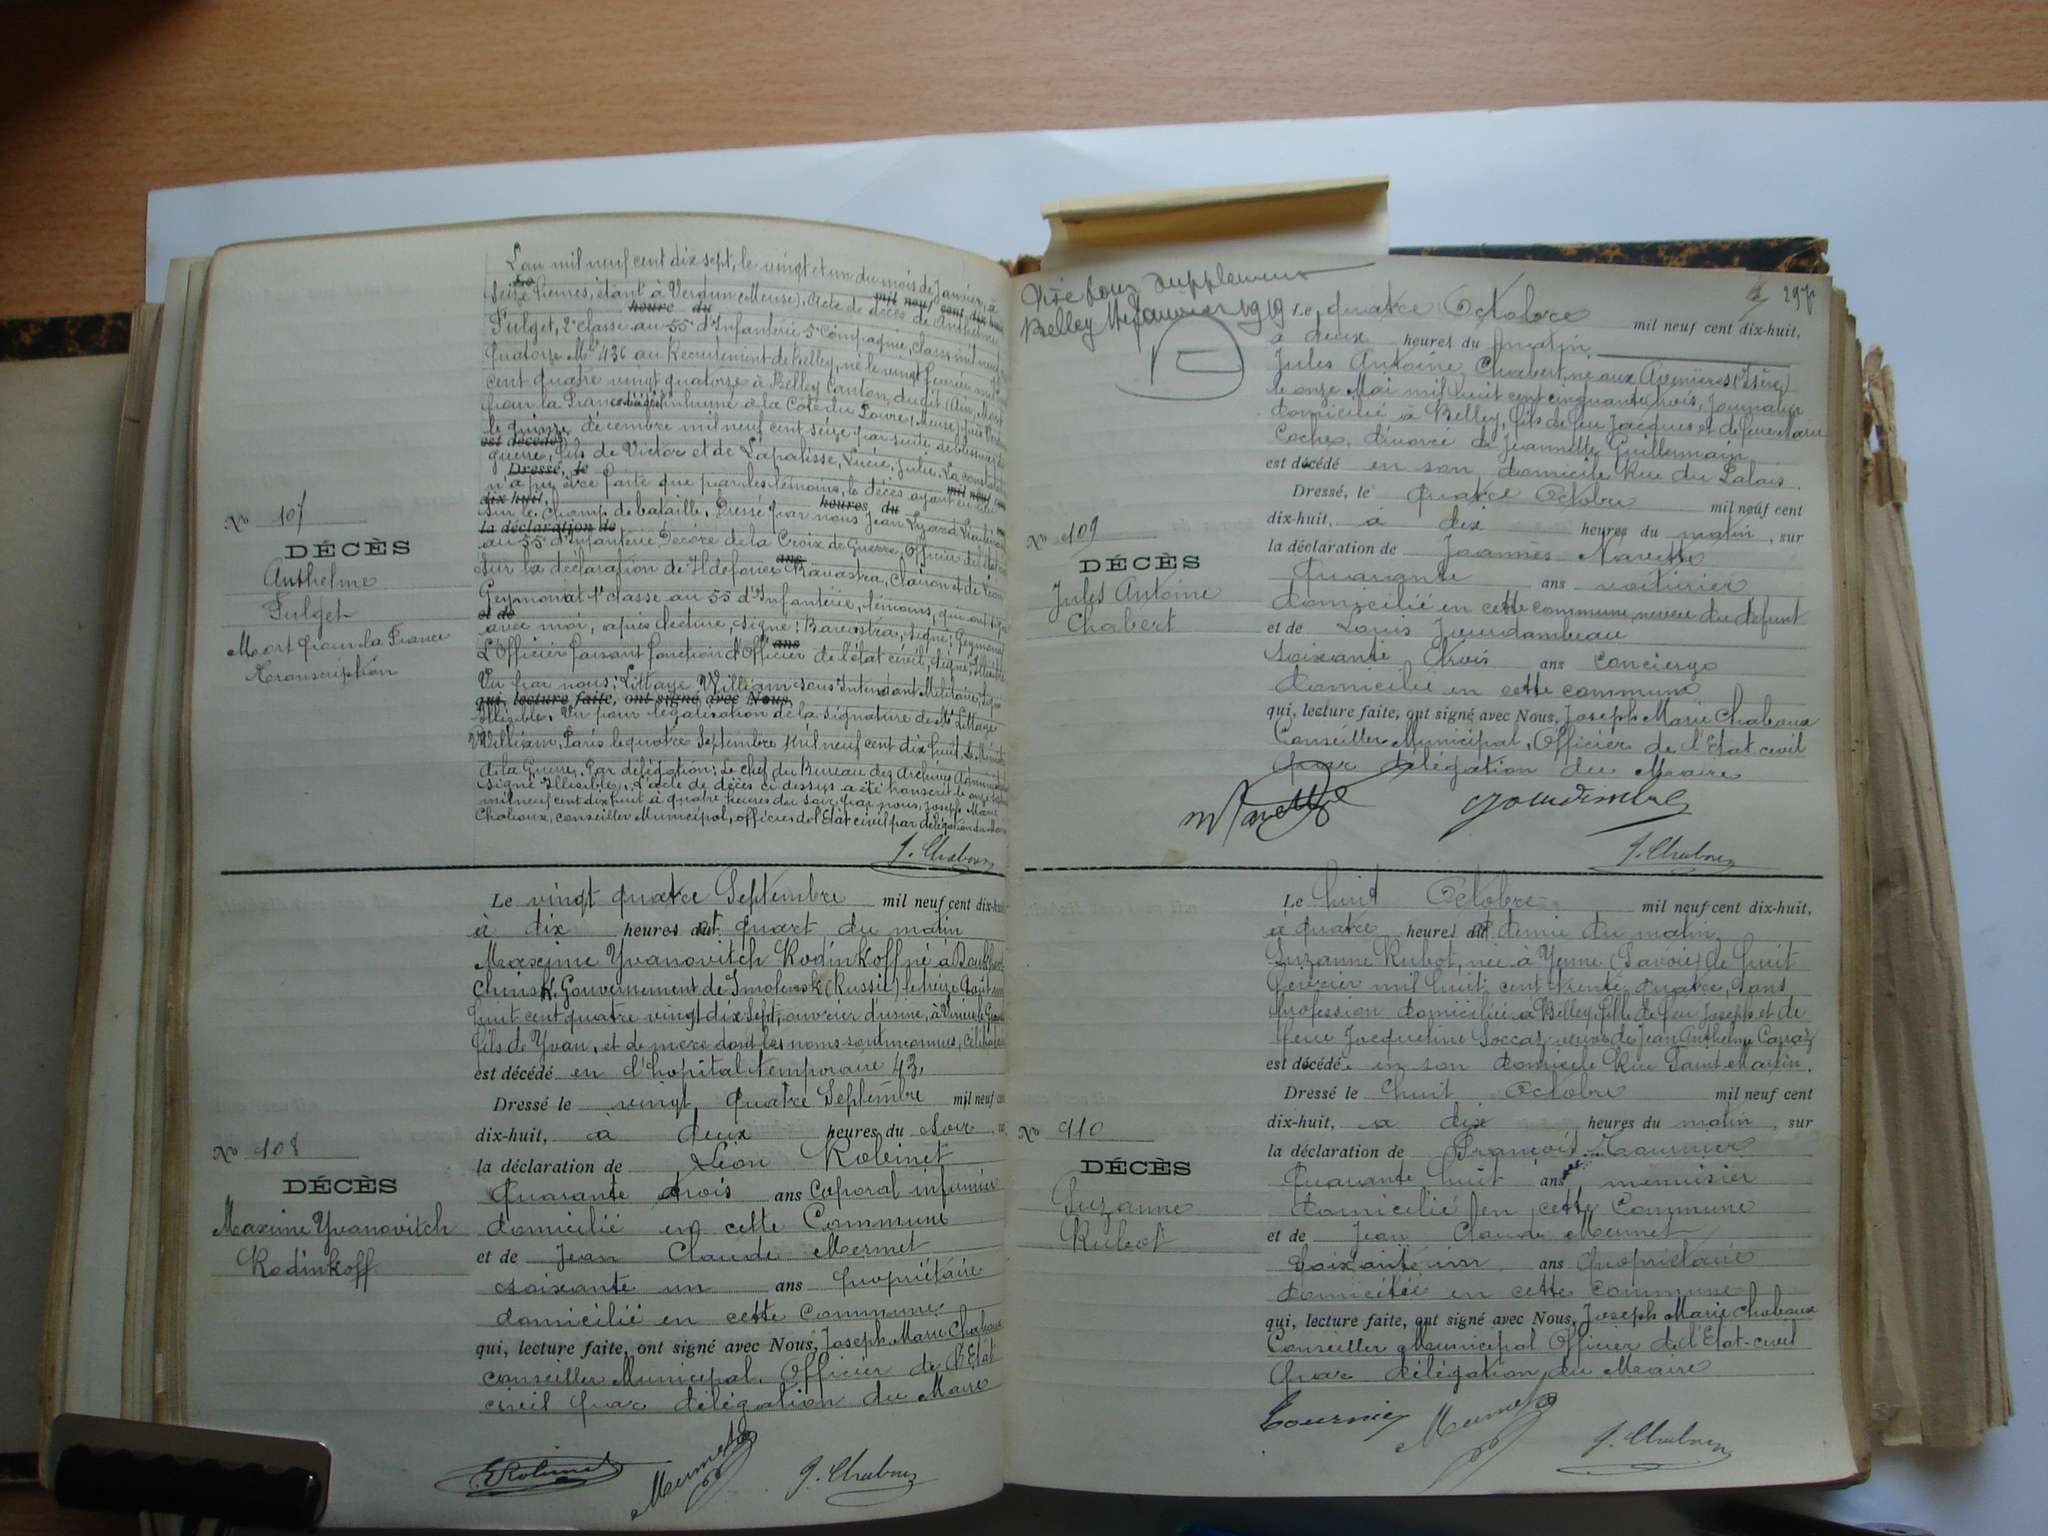 L'an mil neuf cent dix sept, le vingt et un du mois de Janvier, à
Le
seize heures, étant à Verdun (Meuse), Acte de décès de Anthelme
heure du mil neuf cent dix-huit
Fulget, 2e classe au 55e d'Infanterie 5e Compagnie, classe mil neuf cent
quatorze Mle 436 au Recrutement de Belley, né le vingt février mil huit
cent quatre vingt quatorze à Belley Canton dudit (Ain) Mort
pour la France inhumé à la Côte du Poivre (Meuse)
le quinze décembre mil neuf cent seize par suite de blessures de
est décédé
guerre, fils de Victor et de Lapalisse, Lucie, Julie. La constatation
Dressé, le
n'a pu être faite que par les témoins, le décès ayant eu lieu
dix huit, heures du mil neuf cent
sur le champ de bataille. Dressé par nous Jean
la déclaration de
au 55e d'Infanterie Décoré de la Croix de Guerre, Officier de l'état
ans
sur la déclaration de Ildefonce Bavastra, clairon et de Léon
Geymonat 1e classe au 55 d'Infanterie, témoins, qui ont signé
et de
avec moi, après lecture, signé: Bavastra, signé: Geymonat
ans
L'Officier faisant fonction d'Officier de l'état civil, signé,
Vu par nous, Littaye William sous Intendant Militaire, signé
qui, lecture faite, ont signé avec Nous,
Illisible. Vu pour légalisation de la signature de Mr Littaye
William, Paris le quatre Septembre Mil neuf cent dix huit. Le Ministre
de la Guerre. Par délégation: Le chef du Bureau des Archives Administ
signé Illisible. L'acte de décès ci dessus a été transcrit le onze
mil neuf cent dix huit à quatre heures du soir, par nous, Joseph Marie
Chaboux, conseiller Municipal, officier de l'Etat civil par délégation du Maire
No 107
DÉCÈS
Anthelme
Fulget
Mort pour la France
Transcription
J. Chaboux
Le vingt quatre Septembre mil neuf cent dix-huit
à dix heures et quart du matin
Maxime Yvanovitch Rodinkoff né à
Gouvernement de Smolensk (Russie) le treize Août mil
huit cent quatre vingt dix sept, ouvrier d'usine, à
fils de Yvan, et de mère dont les noms sont inconnus, célibataire
est décédé en l'hopital temporaire 43.
Dressé le vingt quatre Septembre mil neuf cent
dix-huit, à deux heures du soir
la déclaration de Léon Robinet
Quarante trois ans Caporal infirmier
domicilié en cette Commune
et de Jean Claude Mermet
soixante un ans propriétaire
domicilié en cette Commune
qui, lecture faite, ont signé avec Nous, Joseph Marie Chaboux
Conseiller Municipal, Officier de l'Etat
civil par délégation du Maire
No 108
DÉCÈS
Maxime Yvanovitch
Rodinkoff
Robinet Mermet J. Chaboux
Visé pour supplément
Belley 11 Janvier 1919
297
Le quatre Octobre mil neuf cent dix-huit,
à deux heures du matin
Jules Antoine Chabert, né aux Avenières (Isère)
le onze Mai mil huit cent cinquante trois, Journalier
domicilié à Belley, fils de feu Jacques et de feue Marie
Cochet, divorcé de Jeannette Guillermain
est décédé en son domicile Rue du Palais.
Dressé, le quatre Octobre mil neuf cent
dix-huit, à dix heures du matin, sur
la déclaration de Joannès Navette
Quarante ans voiturier
domicilié en cette commune neveu du défunt
et de Louis Jourdambeau
soixante trois ans concierge
domicilié en cette commune
qui, lecture faite, ont signé avec Nous, Joseph Marie Chaboux
Conseiller Municipal, Officier de l'Etat civil
par délégation du Maire
No 109
DÉCÈS
Jules Antoine
Chabert
J. Chaboux
Le huit Octobre mil neuf cent dix-huit,
à quatre heures et demie du matin
Suzanne Rubot, née à Yenne (Savoie) le huit
février mil huit cent trente quatre, sans
profession domiciliée à Belley, fille de feu Joseph et de
feue Jacqueline Soccaz veuve de Jean Anthelme Carraz
est décédée en son domicile Rue Saint Martin.
Dressé le huit Octobre mil neuf cent
dix-huit, à dix heures du matin, sur
la déclaration de François Tournier
Quarante huit ans menuisier
domicilié en cette Commune
et de Jean Claude Mermet
Soixante un ans propriétaire
domicilié en cette commune
qui, lecture faite, ont signé avec Nous, Joseph Marie Chaboux
Conseiller Municipal Officier de l'Etat-civil
par délégation du Maire
No 110
DÉCÈS
Suzanne
Rubot
Tournier Mermet J. Chaboux